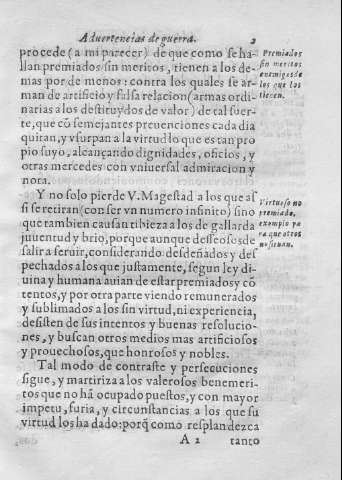 Aduertencias de guerra. 2
procede (a mi parecer) de que como se ha-
llan premiados sin meritos, tienen a los de-
mas por de menos: contra los quales se ar-
man de artificio y falsa relacion (armas ordi-
narias a los destituydos de valor) de tal suer-
te, que cõ semejantes preuenciones cada dia
quitan, y vsurpan a la virtud lo que es tan pro
pio suyo, alcançando dignidades, oficios, y
otras mercedes con vniuersal admiracion y
nota.
Premiados
sin meritos
enemigos de
los que los
tienen.
Y no solo pierde V. Magestad a los que as-
si se retiran (con ser vn numero infinito) sino
que tambien causan tibieza a los de gallarda
juuentud y brio, porque aunque desseosos de
salir a seruir, considerando desdeñados y des
pechados a los que justamente, segun ley di-
uina y humana auian de estar premiados y cõ
tentos, y por otra parte viendo remunerados
y sublimados a los sin virtud, ni experiencia,
desisten de sus intentos y buenas resolucio-
nes, y buscan otros medios mas artificiosos
y prouechosos, que honrosos y nobles.
Virtuoso no
premiado,
exemplo pa
ra que otros
no siruan.
Tal modo de contraste y persecuciones
sigue, y martiriza a los valerosos benemeri-
tos que no hã ocupado puestos, y con mayor
impetu, furia, y circunstancias a los que su
virtud los ha dado: porq̃ como resplandezca
A 2 tanto